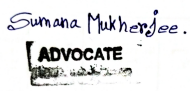 Sumana Mukherjee.
ADVOCATE